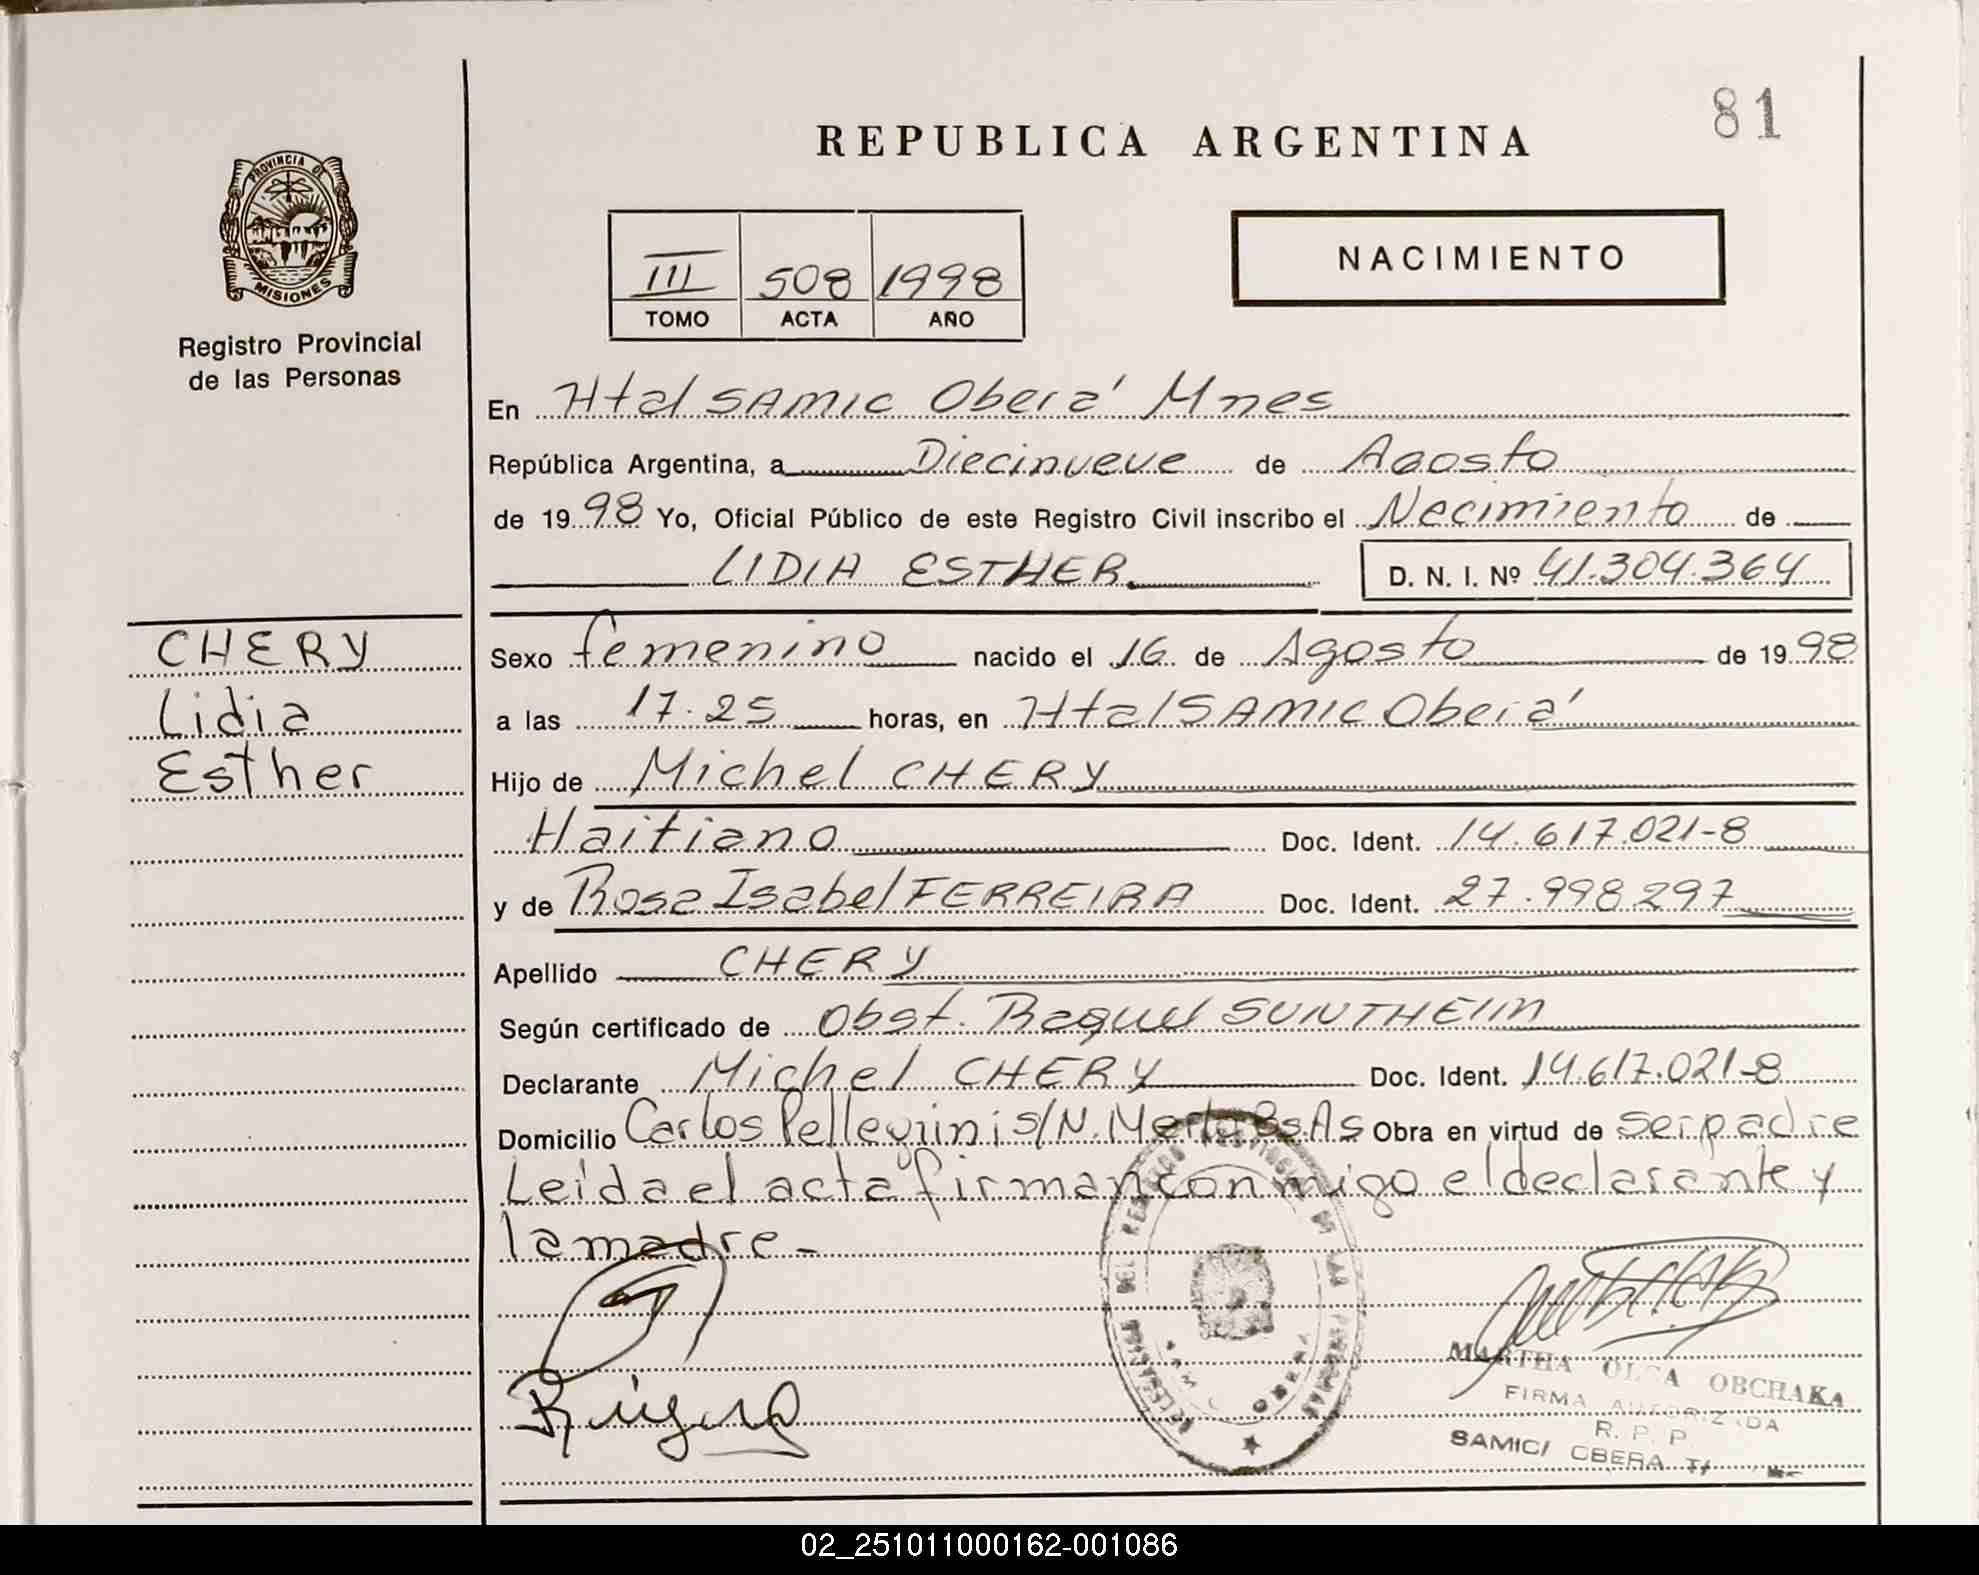 81
REPUBLICA ARGENTINA
PROVINCIA DE
MISIONES
Registro Provincial
de las Personas
III 508 1998
TOMO ACTA AÑO
NACIMIENTO
En Htal SAMIC Oberá Mnes
República Argentina, a Diecinueve de Agosto
de 1998 Yo, Oficial Público de este Registro Civil inscribo el Necimiento de
LIDIA ESTHER
D. N. I. Nº 41.304.364
CHERY
Lidia
Esther
Sexo femenino nacido el 16 de Agosto de 1998
a las 17.25 horas, en Htal SAMIC Oberá
Hijo de Michel CHERY
Haitiano Doc. Ident. 14.617.021-8
y de Rosa Isabel FERREIRA Doc. Ident. 27.998.297
Apellido CHERY
Según certificado de Obst. Raquel SUNTHEIM
Declarante Michel CHERY Doc. Ident. 14.617.021-8
Domicilio Carlos Pellegrini s/N. Merlo Bs.As Obra en virtud de ser padre
Leída el acta firman conmigo el declarante y
la madre -
MARTHA OLGA OBCHAKA
FIRMA AUTORIZADA
R. P. P.
SAMIC/ OBERA
02_251011000162-001086